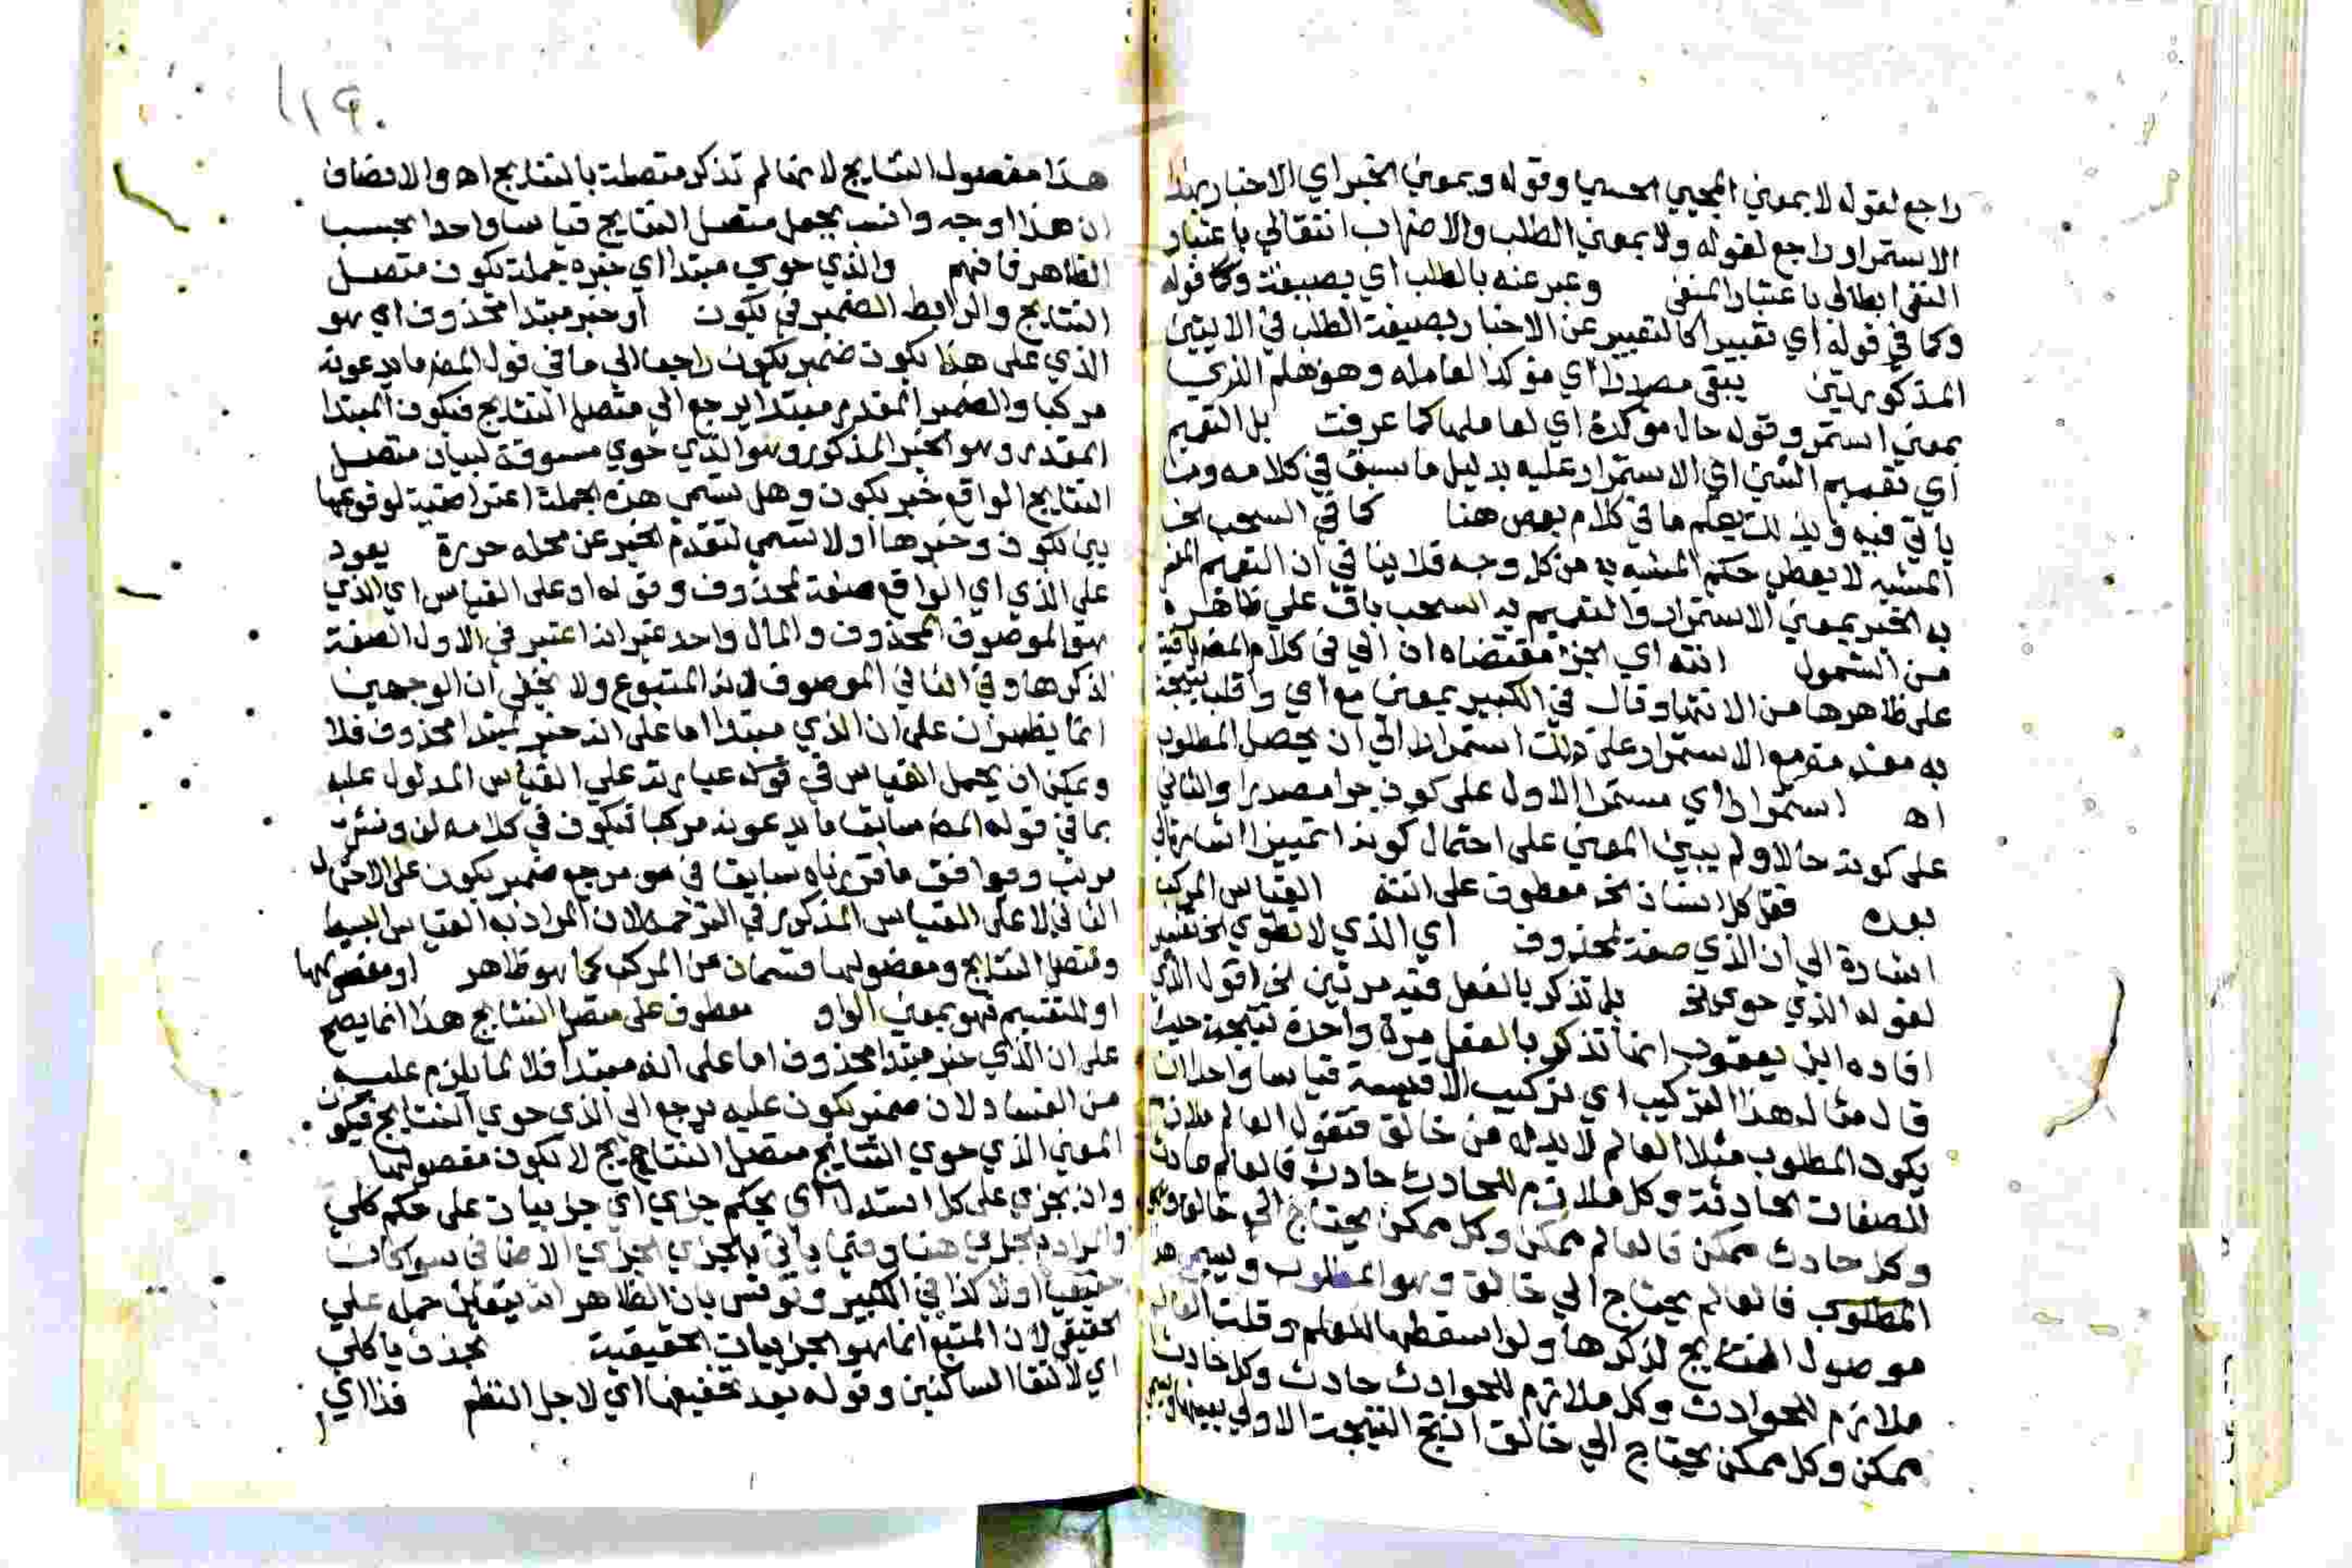 راجع لقوله لا بمعني المجيي الحسي وقوله وبمعني الخبر اي الاخبار بهذا
الاستمرار راجع لقوله ولا بمعني الطلب والاضراب انتقالي باعتبار
النفي ابطالي باعتبار المنفي وعبر عنه بالطلب اي بصيغته وكما قوله
وكما في قوله اي تعبيرا كالتعبير عن الاخبار بصيغة الطلب في الايتين
المذكورتين يبقي مصدرا اي مؤكدا لعامله وهو هلم الذي
بمعني استمر وقوله حال مؤكدة اي لعاملها كما عرفت بل التعميم
اي تعميم الشي اي الاستمرار عليه بدليل ما سبق في كلامه وما
ياتي فيه وبذلك يعلم ما في كلام بعض هنا كما في السحب الخ
المشبه لا يعطي حكم المشبه به من كل وجه فلا ينافي ان التعميم
به الخبر بمعني الاستمرار والتعميم به السحب باق علي ظاهره
من الشمول انته اي الخ مقتضاه ان الي في كلام المص باقية
علي ظاهرها من الانتها وقال في الكبير بمعني مع اي واقلب نتيجة
به مقدمة مع الاستمرار علي ذلك استمرارا الي ان يحصل المطلوب
اه استمرارا اي مستمرا الاول علي كون جرا مصدرا والثاني
علي كونه حالا ولم يبين المعني علي احتمال كونه تمييزا اشارة الي
بعده فقل كل انسان الخ معطوف علي انته القياس المركب
اشارة الي ان الذي صفة لمحذوف اي الذي لا نطوي الخ تفسير
لقوله الذي حوي الخ بل تذكر بالفعل فقد مرتين الخ اقول الذي
افاده ابن يعقوب انها تذكر بالفعل مرة واحدة نتيجة حيث
قال مثال هذا التركيب اي تركيب الاقيسة قياسا واحدا ان
يكون المطلوب مثلا العالم لا بد له من خالق فتقول العالم ملازم
للصفات الحادثة وكل ملازم للحادث حادث فالعالم حادث
وكل حادث ممكن فالعالم ممكن وكل ممكن يحتاج الي خالق
المطلوب فالعالم يحتاج الي خالق وهو المطلوب ويسمي هذا
موصول النتايج لذكرها ولو اسقطها للعلم وقلت العالم
ملازم للحوادث وكل ملازم للحوادث حادث وكل حادث
ممكن وكل ممكن يحتاج الي خالق انتج النتيجة الاولي بعينها
١١٩٠
هذا مفصول النتايج لانها لم تذكر متصلة بالنتايج اه والانصاف
ان هذا اوجه وانسب بجعل متصل النتايج قياسا واحدا بحسب
الظاهر فافهم والذي حوي مبتدا اي خبره جملة يكون متصل
النتايج والرابط الضمير في يكون او خبر مبتدا محذوف اي هو
الذي علي هذا يكون ضمير يكون راجعا الي ما في قول المص ما يدعونه
مركبا والضمير المقدر مبتدا يرجع الي متصل النتايج فتكون المبتدا
المقدر وهو الخبر المذكور وهو الذي حوي مسوقة لبيان متصل
النتايج الواقع خبر يكون وهل تسمي هذه الجملة اعتراضية لوقوعها
بين يكون وخبرها او لا تسمي لتقدم الخبر عن محله حررة يعود
علي الذي اي الواقع صفة لمحذوف وقوله او علي القياس اي الذي
هو الموصوف المحذوف والمال واحد غير انه اعتبر في الاول الصفة
لذكرها وفي الثاني الموصوف لانه المتبوع ولا يخفي ان الوجهين
انما يظهران علي ان الذي مبتدا اما علي انه خبر لمبتدا محذوف فلا
ويمكن ان يحمل القياس في قوله عبارته علي القياس المدلول عليه
بما في قوله المص سابقا ما يدعونه مركبا فيكون في كلامه لف ونشر
مرتب وموافق ما قررناه سابقا في مرجع ضمير يكون علي الاحتمال
الثاني لا علي القياس المذكور في الترجمة لان المراد به القياس البسيط
ومتصل النتايج ومفصولها قسمان من المركب كما هو ظاهر او مفصولها
او للتقسيم فهو بمعني الواو معطوف علي متصل النتايج هذا انما يصح
علي ان الذي خبر مبتدا محذوف اما علي انه مبتدا فلا لما يلزم عليه
من الفساد لان ضمير يكون عليه يرجع الي الذي حوي النتايج فيكون
المعني الذي حوي النتايج متصل النتايج لا يكون مفصولها
وان بجزي علي كل استدل اي بحكم جزي اي جزييات علي حكم كلي
والمراد بالجزي هنا وفيما ياتي بالجزي الجزي الاضافي سوا كان
حقيقيا اولا كذا في الكبير ونوقش بان الظاهر انه يتعين حمله علي
الحقيقي لان المتتبع انما هو الجزييات الحقيقية بحذف يا كلي
اي لالتقا الساكنين وقوله بعد تخفيفها اي لاجل النظم فذا اي